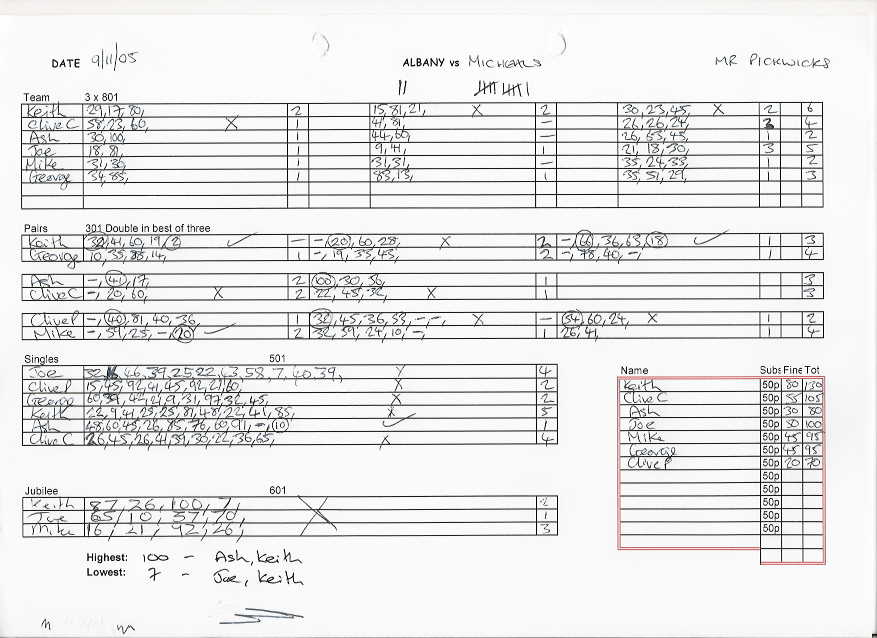 DATE 9/11/05 ALBANY vs MICHEALS MR PICKWICKS
Team 3 x 801
Keith 29,17,80, 2 15,81,21, X 2 30,23,45, X 2 6
Clive C 58,23,60, X 1 41,81, — 26,26,24, 4
Ash 30,100, 1 44,60, — 26,63,45, 1 2
Joe 18,81, 1 9,41, 1 21,18,30, 3 5
Mike 31,36, 1 31,31, — 35,24,33, 1 2
George 34,85, 1 83,13, 1 35,51,29, 1 3
Pairs 301 Double in best of three
Keith 41,60,19,(2) ✓ — -,(20),60,28, X 2 -,(66),36,63,(18) ✓ 1 3
George 10,35,85,14, 1 -,19,35,43, 2 -,78,40,-, 1 4
Ash -,(41),17, 2 (100),30,56, 1 3
Clive C -,20,60, X 2 22,45,32, X 1 3
Clive P -,(40),81,40,36, 1 (32),45,36,53,-,-, X — (54),60,24, X 1 2
Mike -,59,25,-,(20) ✓ 2 32,59,24,10,-, 1 26,41, 4
Singles 501
Joe 46,39,25,22,43,58,7,40,39, X 4
Clive P 15,45,92,41,45,92,21,60, X 2
George 60,39,42,21,9,31,97,32,45, X 2
Keith 22,9,41,25,25,81,48,22,41,85, X 5
Ash 48,60,45,26,85,76,60,91,-,(10) ✓ 1
Clive C 26,45,26,41,39,30,22,36,65, X 4
Name Subs Fine Tot
Keith 50p 80 130
Clive C 50p 55 105
Ash 50p 30 80
Joe 50p 50 100
Mike 50p 45 95
George 50p 45 95
Clive P 50p 20 70
50p
50p
50p
50p
50p
Jubilee 601
Keith 87,26,100,7, X 2
Joe 65,10,57,70, 1
Mike 16,21,92,26, 3
Highest: 100 - Ash, Keith
Lowest: 7 - Joe, Keith